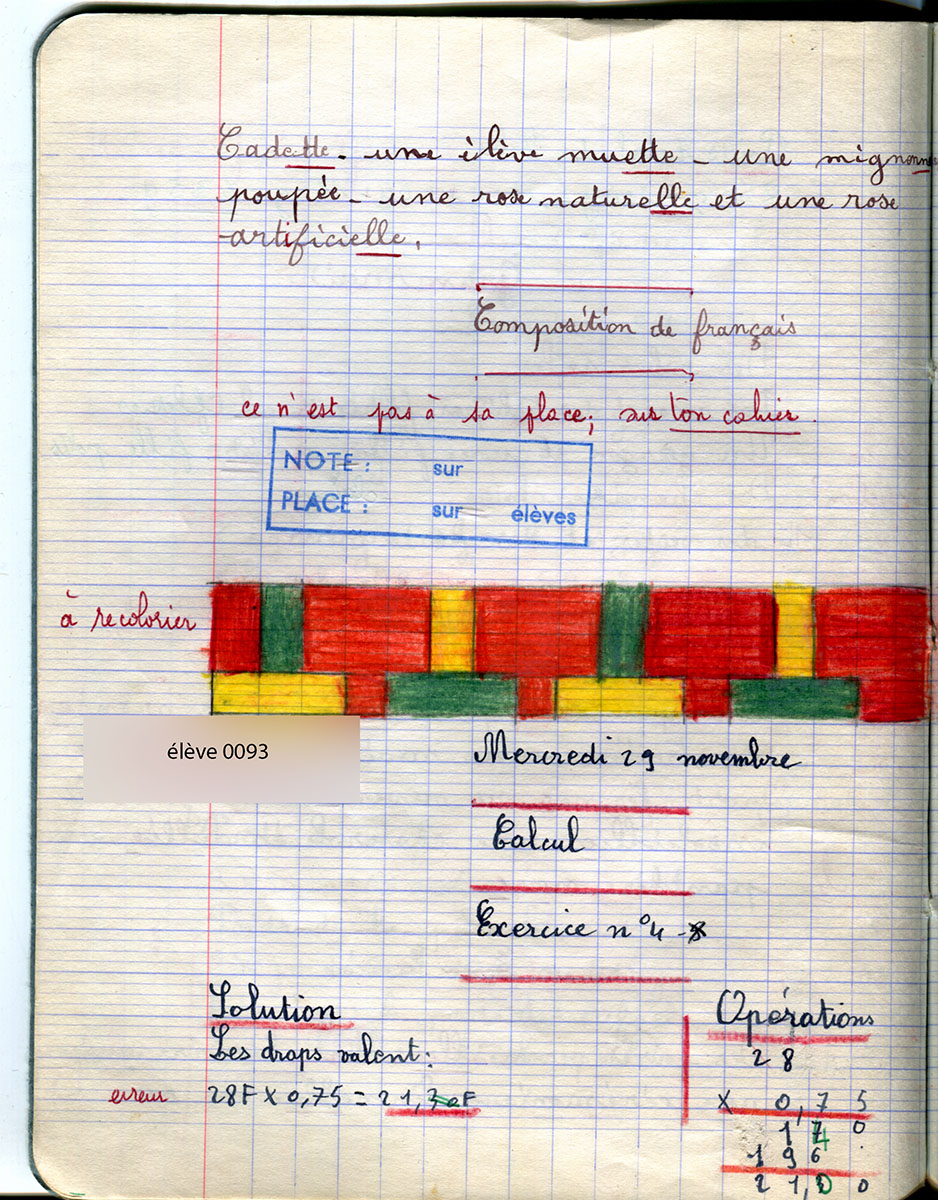 Cadette - une élève muette - une mignonne
poupée - une rose naturelle et une rose
artificielle.
Composition de français
ce n'est pas à sa place; sur ton cahier.
NOTE : sur
PLACE : sur élèves
à recolorier
élève 0093
Mercredi 29 novembre
Calcul
Exercice n°4
Solution
Opérations
Les draps valent:
28
erreur 28F X 0,75 = 21, F
X 0,75
1 4 0
196
21, 0 0